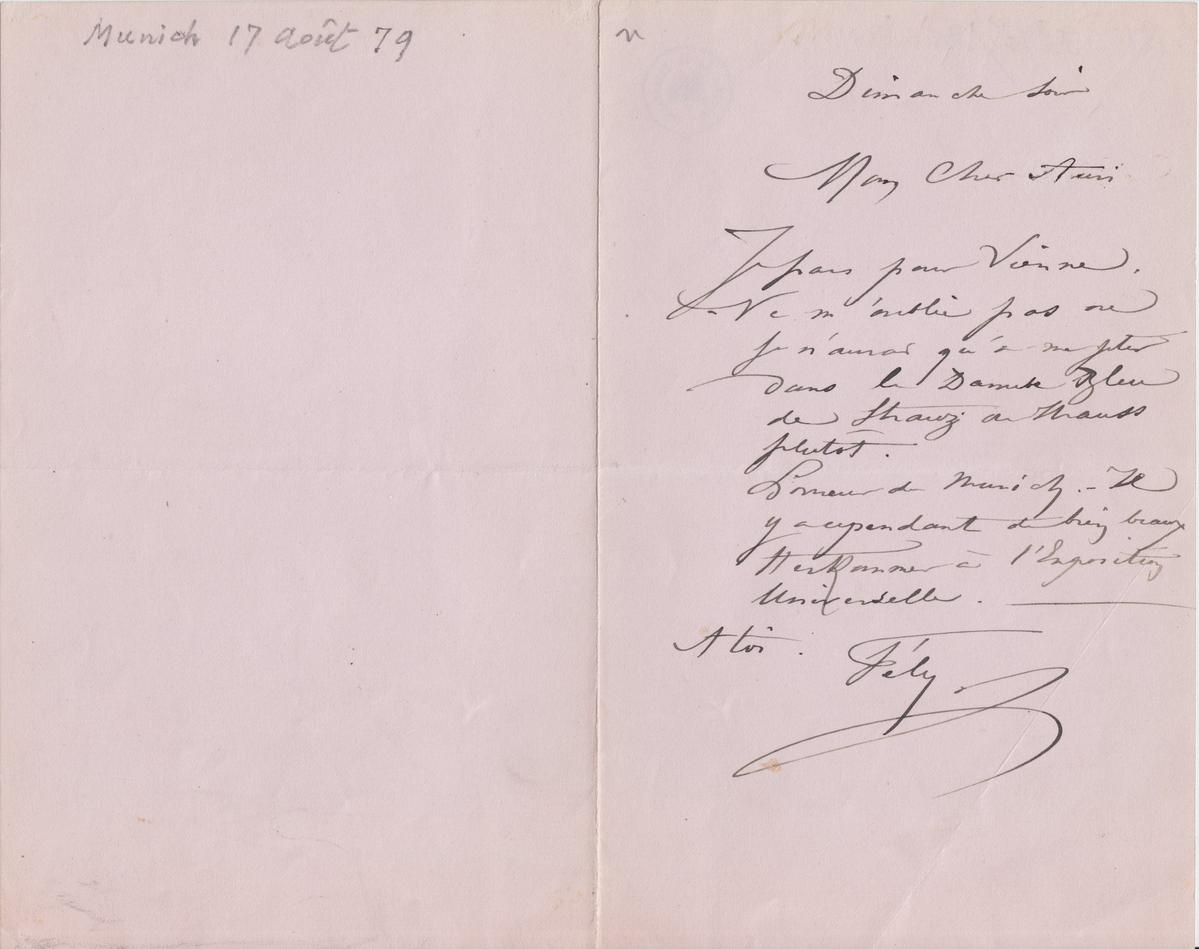 Munich 17 août 79
Dimanche Soir
Mon Cher Ami
Je pars pour Vienne.
- Ne m'oublie pas ou
je n'aurai qu'à me jeter
dans le Danube Bleu
de Strauz ou Strauss
plutôt.
de Munich. - Il
y a cependant de bien beaux
Herkommer à l'Exposition
Universelle.
A toi.
Fély